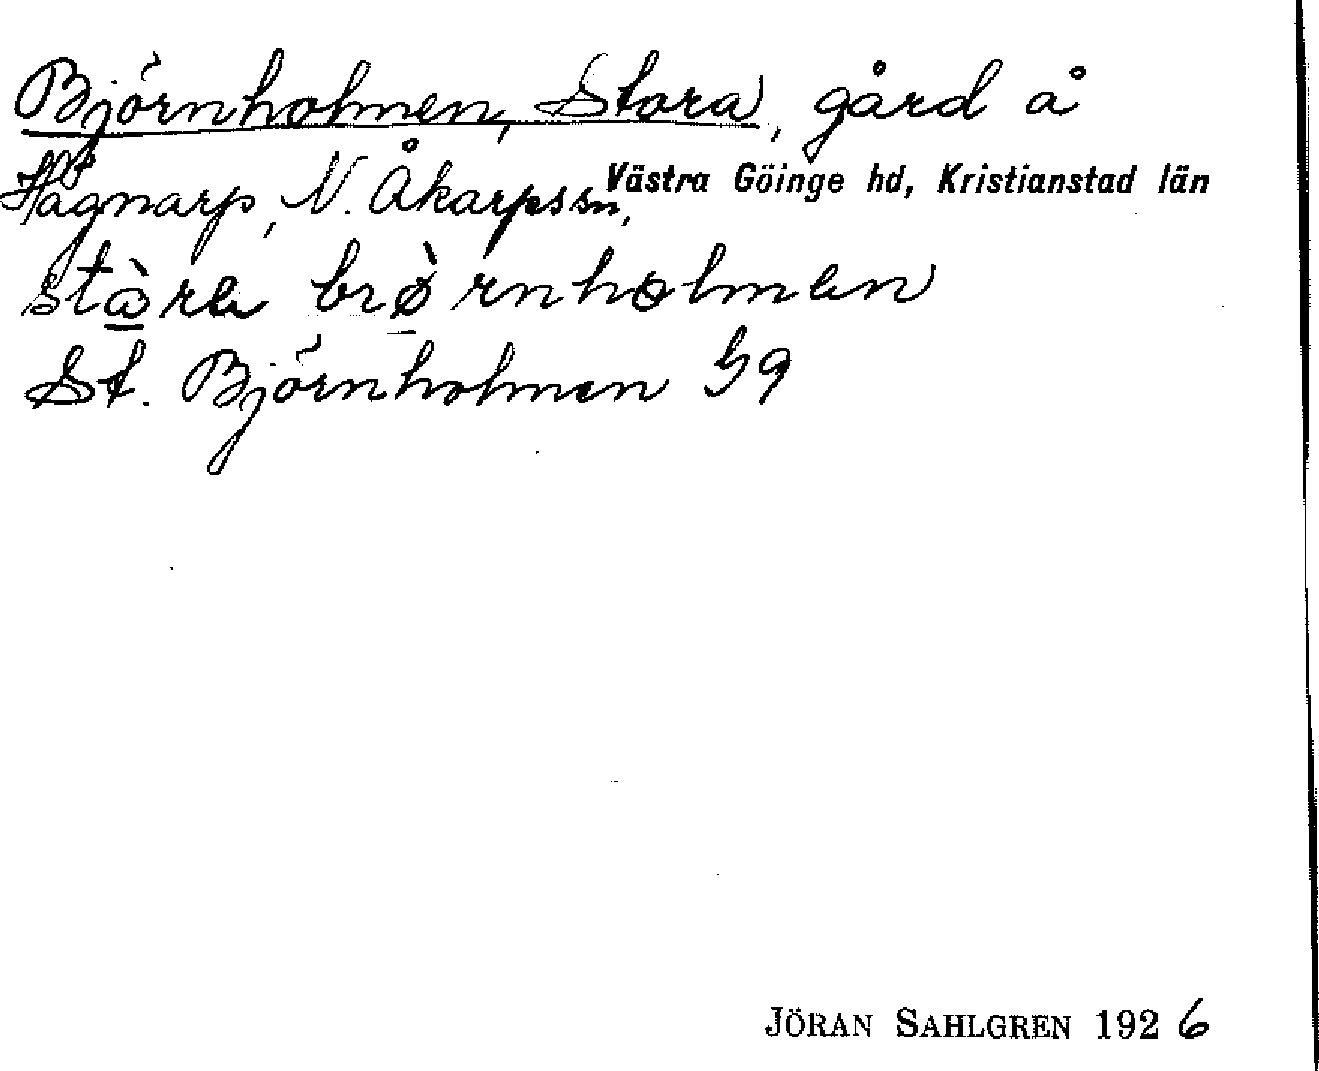 Björnholmen, Stora, gård å
Hågnarp, N. Åkarpssn, Västra Göinge hd, Kristianstad län
stò̲ra brø̲̀rnholmen
St. Björnholmen G9
JÖRAN SAHLGREN 1926